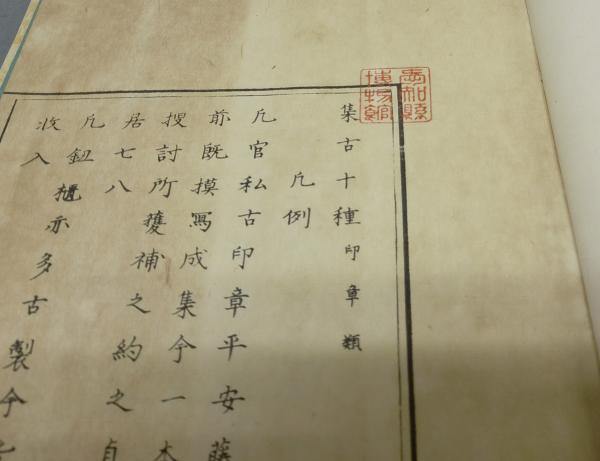 集古十種印章類
凡例
凡官私古印章平安藤
前既摸寫成集今一本
搜討所獲補之約之
居七八
凡鈕櫃亦多古製今
收入
愛知縣
博物館